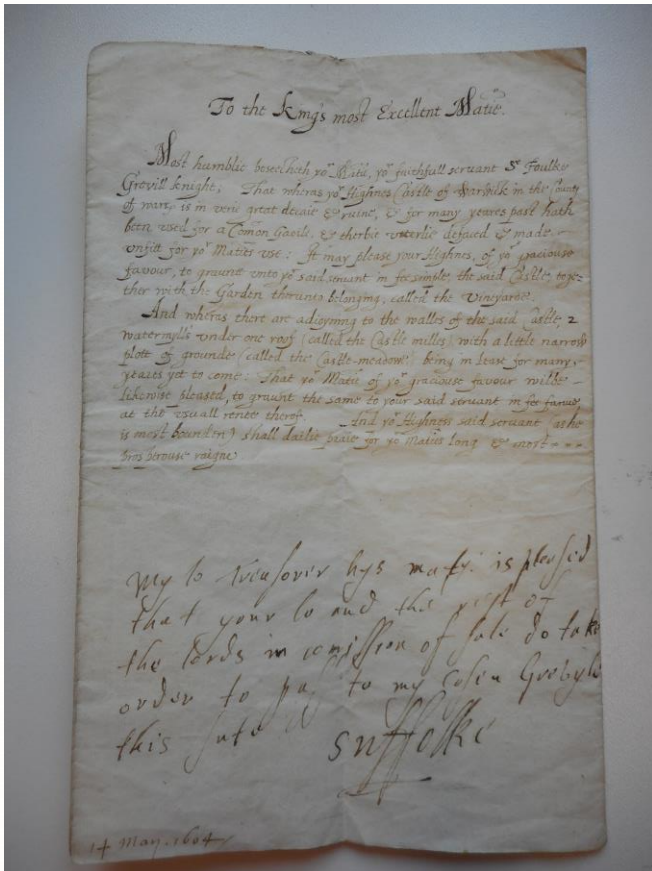 To the Kings most Excellent Matie.
Most humblie beseecheth yor Matie, yor faithfull servant Sr Foulke
Grevill knight; That wheras yor Highnes Castle of Warwik in the County
of warr: is in verie great decaie & ruine, & for many yeares past hath
been used for a Comon Gaole, & therbie utterlie defaced & made
unfitt for yor Maties use: It may please your Highnes, of yor graciouse
favour, to graunt unto yor said servant in fee simple, the said Castle, toge=
ther with the Garden therunto belonging, called the vineyarde.
And wheras there are adioyning to the walles of the said Castle, 2
watermylls under one roof (called the Castle milles) with a little narrow
plott of grounde (called the Castle-meadow) being in lease for many
yeares yet to come: That yor Matie of yor graciouse favour wilbe
likewise pleased, to graunt the same to your said servant in fee farme,
at the usuall rente therof. And yor Highness said servant (as he
is most bounden) shall dailie praie for yor Maties long & most
prosperouse raigne
My lo treasorer hys maty. is plessed
that your lo and the rest of
the lords in comission of sale do take
order to pas to my cosen Grevyle
this sute
Suffolke
14 May. 1604